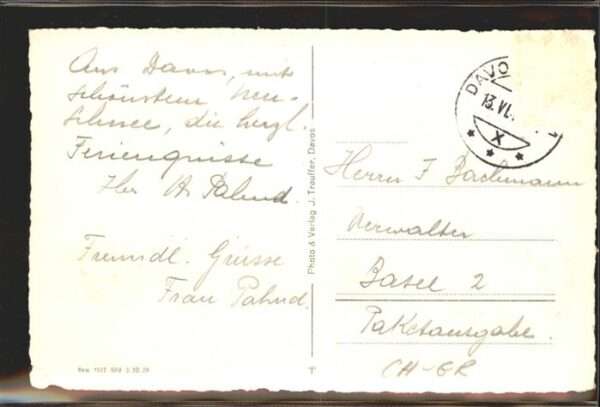 Aus Davos, mit
schönstem Neu-
schnee, die herzl.
Feriengrüsse
Ihr A. Pahud.
Freundl. Grüsse
Frau Pahud.
Photo & Verlag J. Trauffer, Davos
DAVO
13. VI.
X
Herrn F. Bachmann
Verwalter
Basel 2
Paketausgabe.
CH-GR